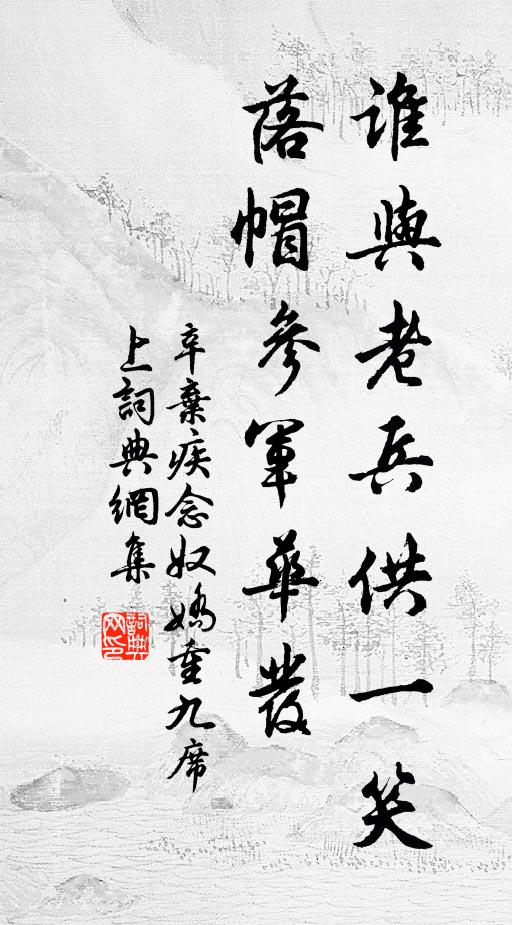 谁與老兵供一笑
落帽參軍華發
辛棄疾念奴嬌重九席
上詞典網集
詞典网印